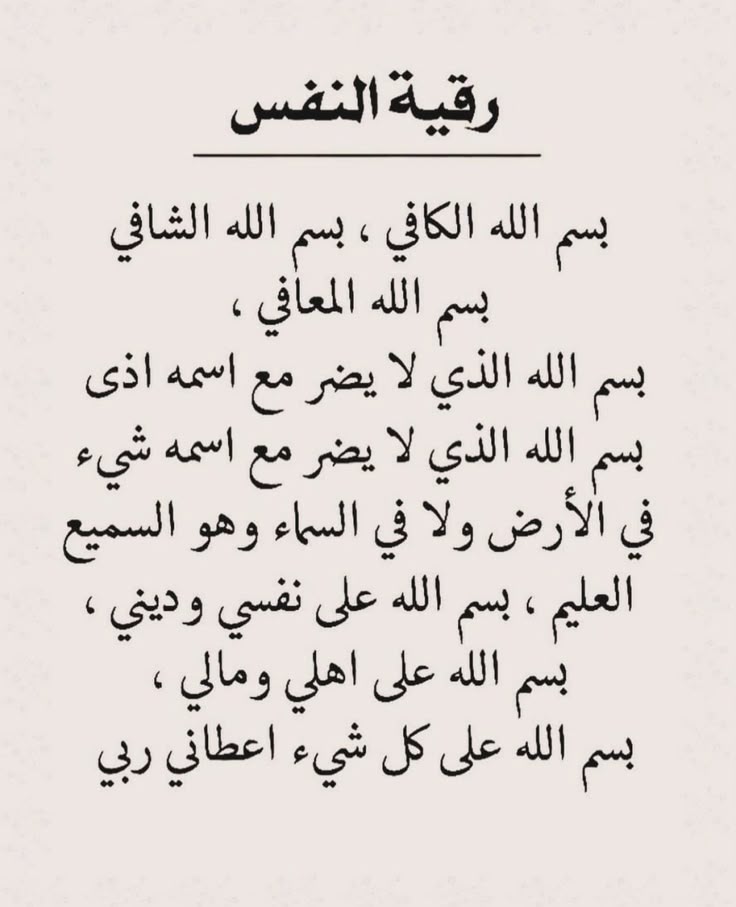 رقية النفس
بسم الله الكافي ، بسم الله الشافي
بسم الله المعافي ،
بسم الله الذي لا يضر مع اسمه اذى
بسم الله الذي لا يضر مع اسمه شيء
في الأرض ولا في السماء وهو السميع
العليم ، بسم الله على نفسي وديني ،
بسم الله على اهلي ومالي ،
بسم الله على كل شيء اعطاني ربي